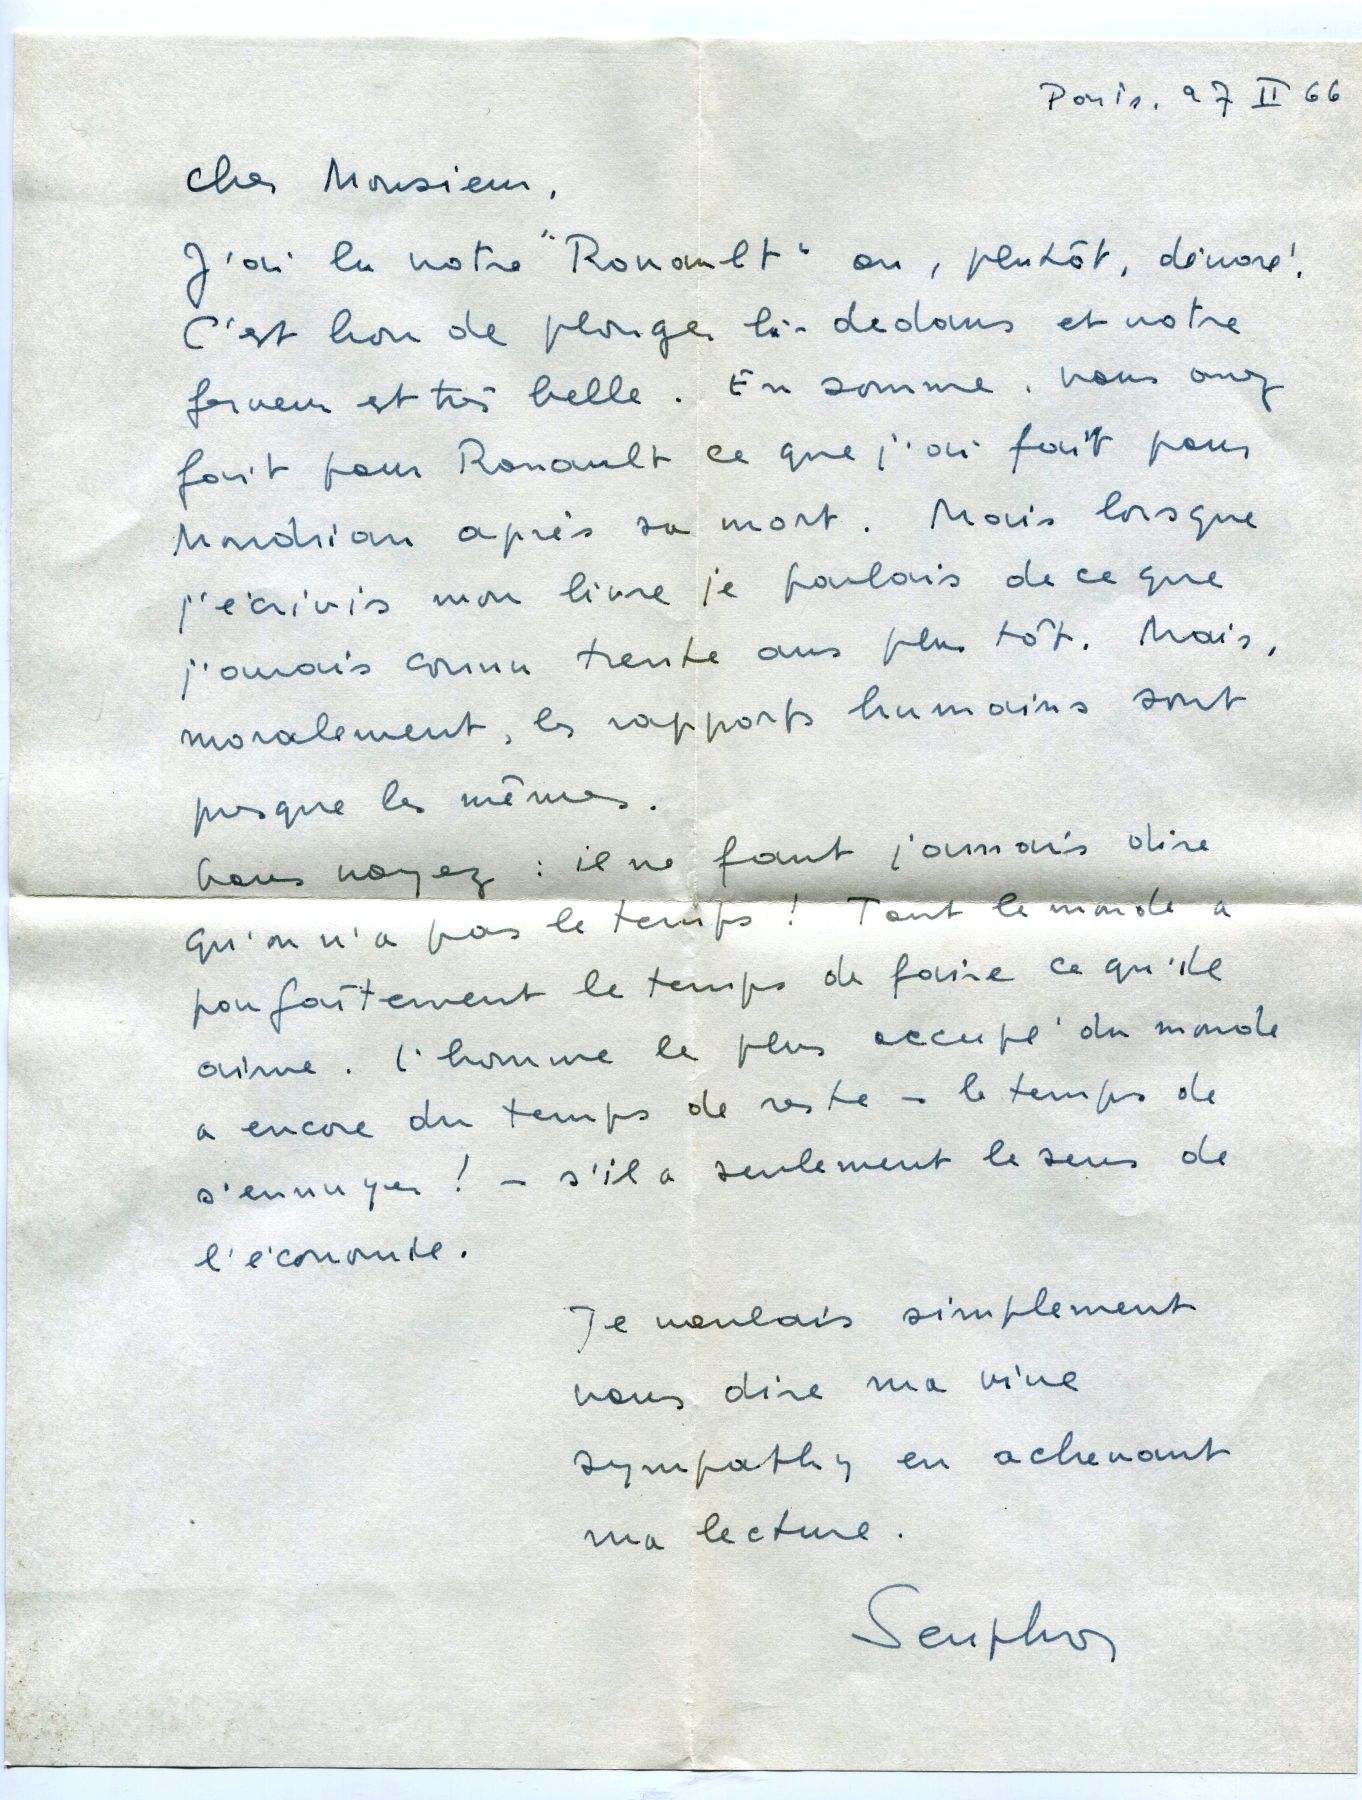 Paris. 27 II 66
Cher Monsieur,
J'ai lu votre "Rouault" ou, plutôt, dévoré!
C'est bon de plonger là-dedans et votre
ferveur est très belle. En somme, vous avez
fait pour Rouault ce que j'ai fait pour
Mondrian après sa mort. Mais lorsque
j'écrivis mon livre je parlais de ce que
j'avais connu trente ans plus tôt. Mais,
moralement, les rapports humains sont
presque les mêmes.
Vous voyez : il ne faut jamais dire
qu'on n'a pas le temps! Tout le monde a
parfaitement le temps de faire ce qu'il
aime. L'homme le plus occupé du monde
a encore du temps de reste – le temps de
s'ennuyer! – s'il a seulement le sens de
l'économie.
Je voulais simplement
vous dire ma vive
sympathy en achevant
ma lecture.
Seuphor